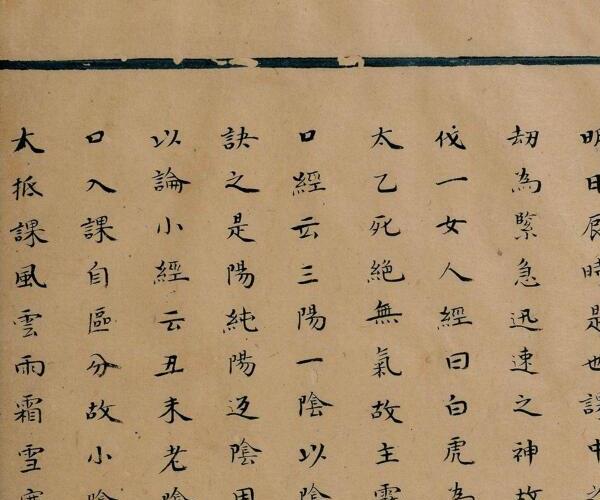 明日辰時是也課中
劫為緊急迅速之神故
伐一女人經曰白虎為
太乙死絕無氣故主
口經云三陽一陰以陰
訣之是陽純陽返陰
以論小經云丑未老陰
口入課自區分故小陰
大抵課風雲雨霜雪